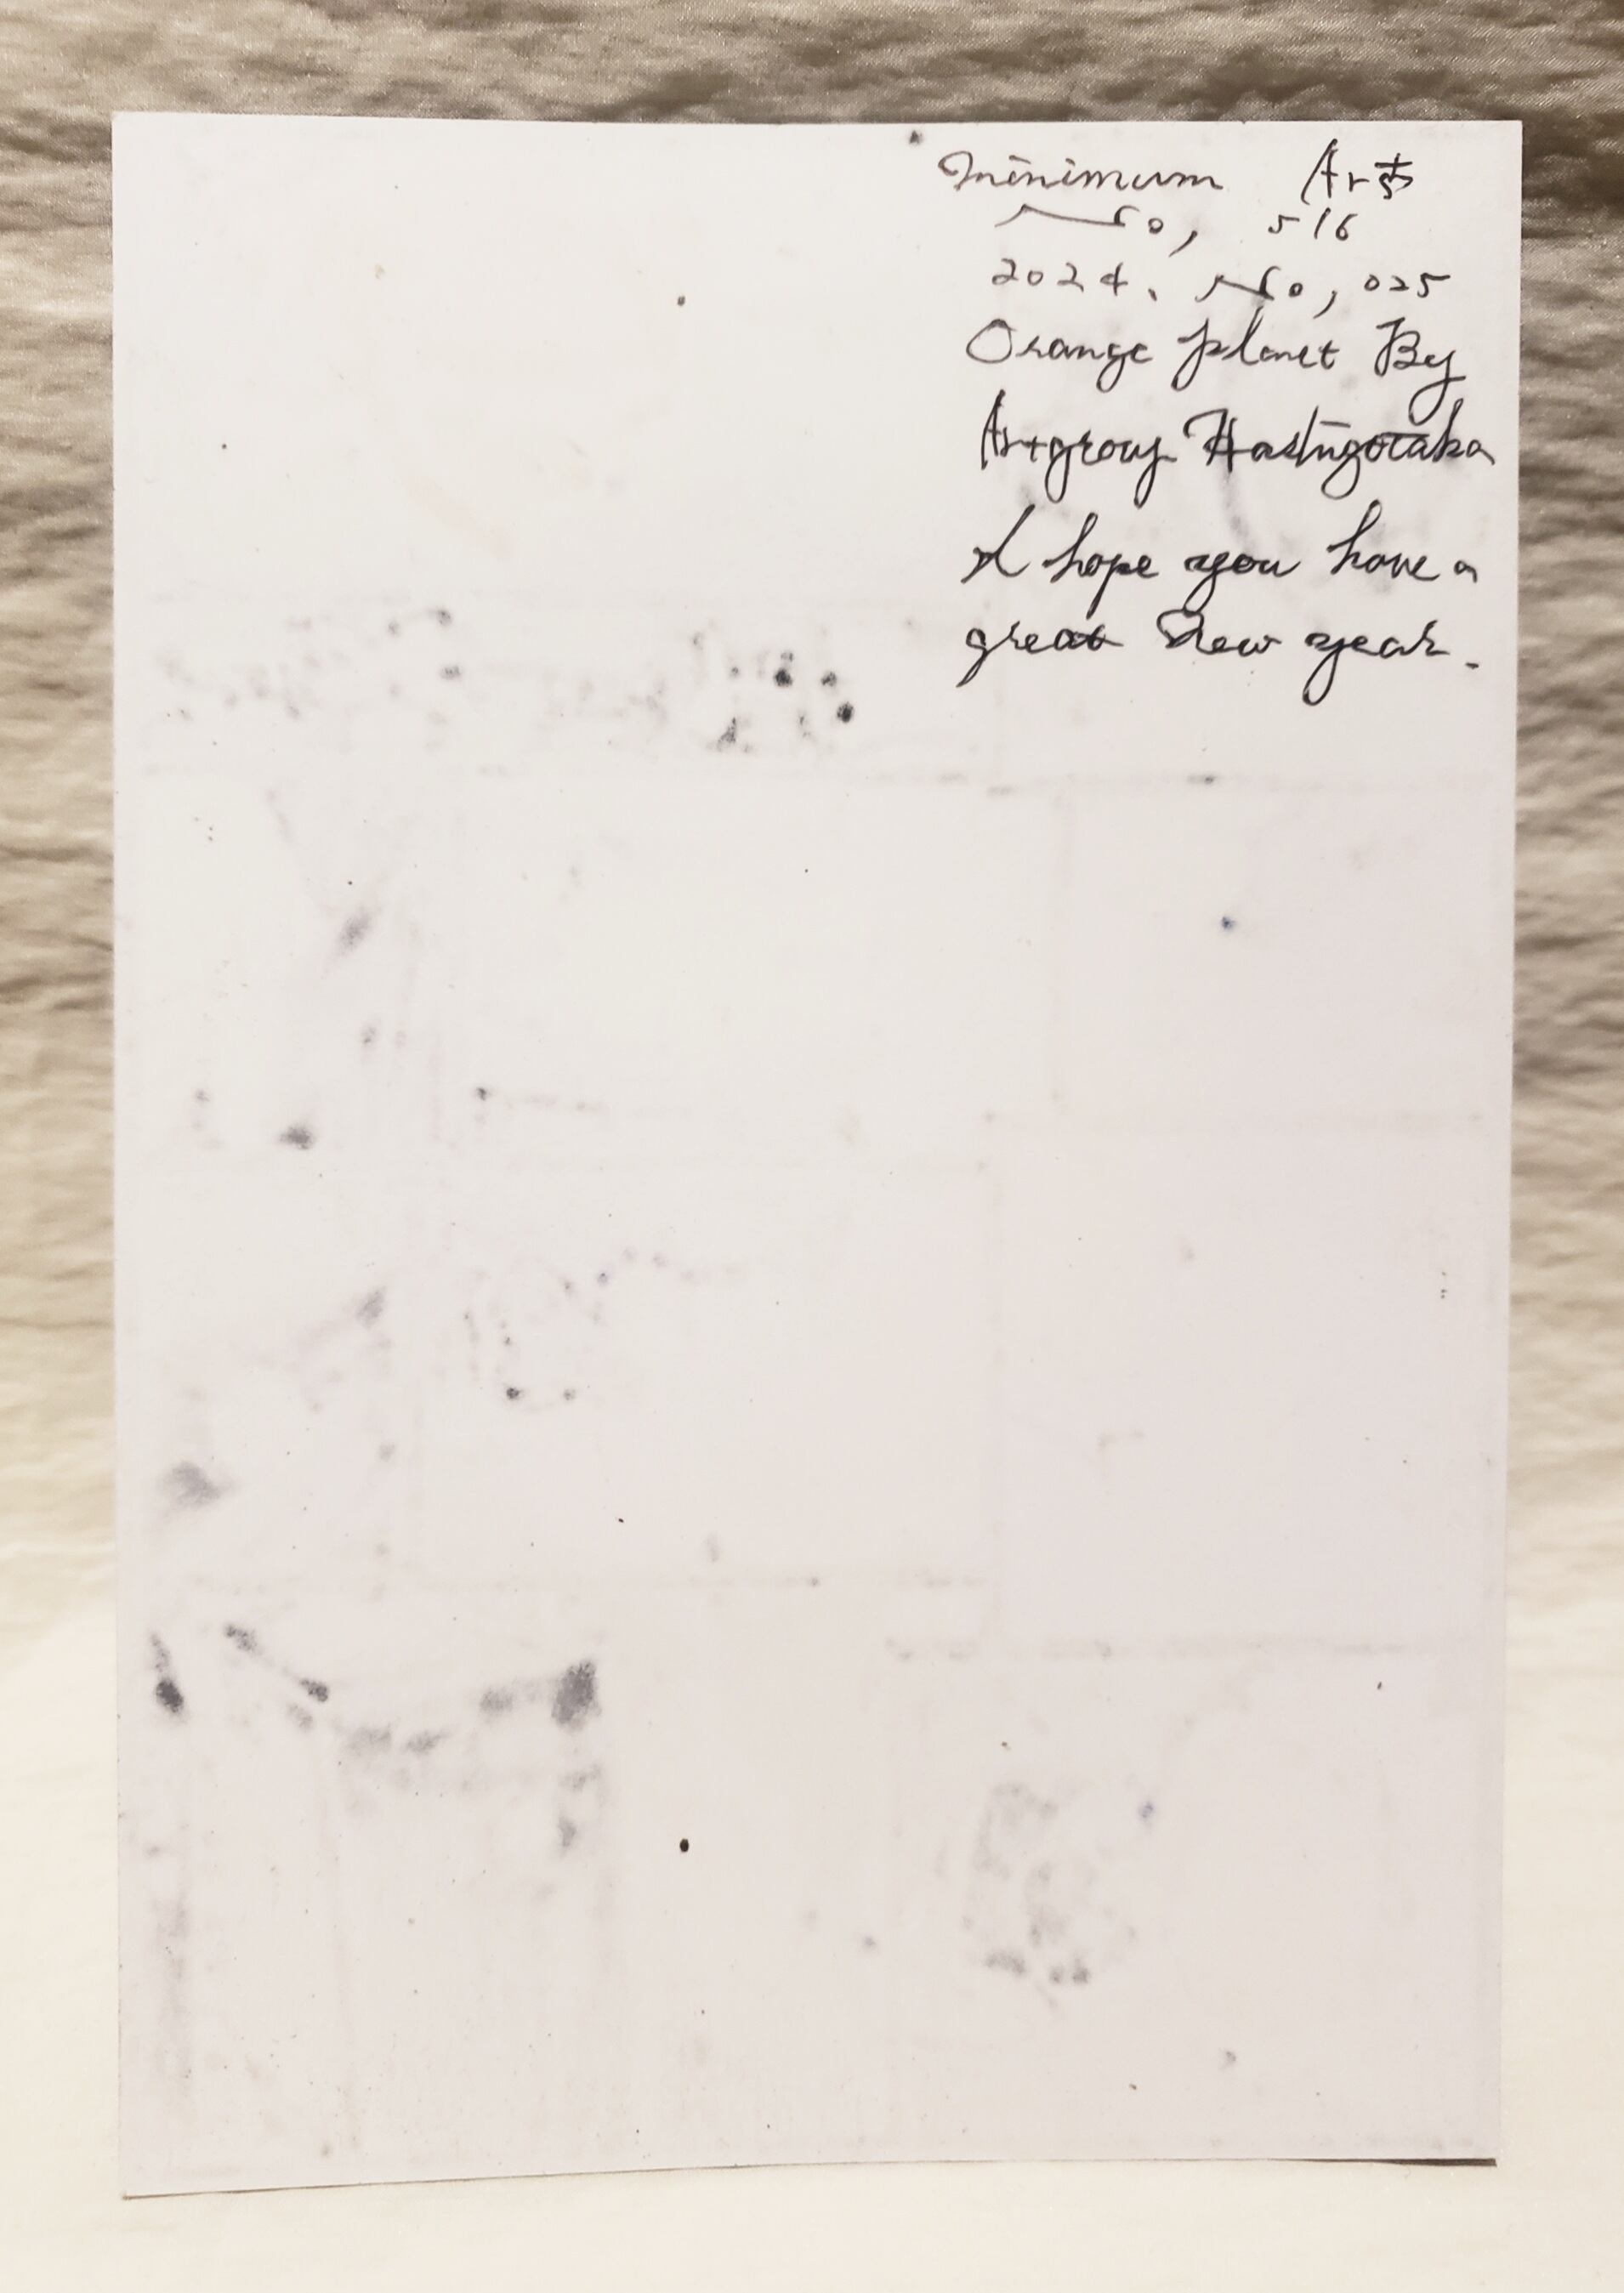 minimum Art
No, 516
2024. No, 025
Orange planet By
Artgrouy Hashigotaka
I hope you have a
great New year.